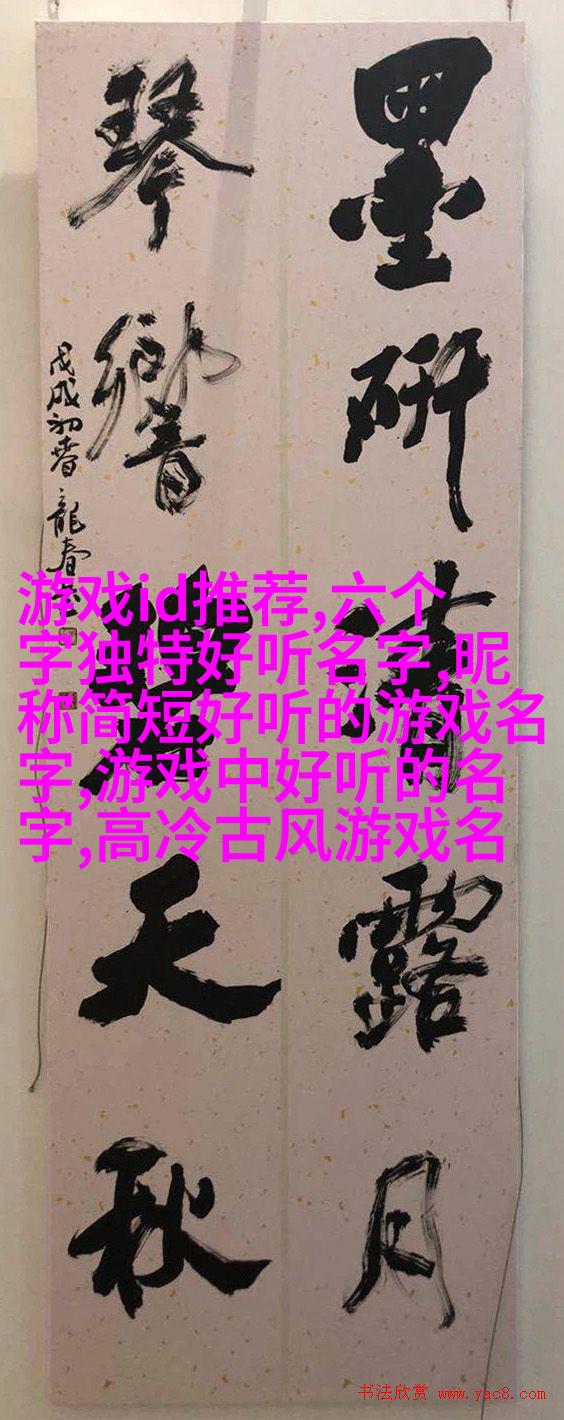 墨研清露月
琴響碧天秋
戊戌初春龍春
游戏id推荐,六个
字独特好听名字,昵
称简短好听的游戏名
字,游戏中好听的名
字,高冷古风游戏名
书法欣赏 www.yac8.com